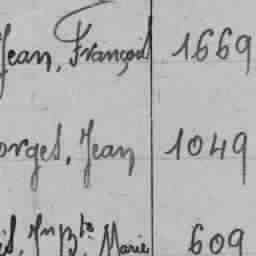 Jean, François 1669
orges, Jean 1049
Jn Bte Marie 609